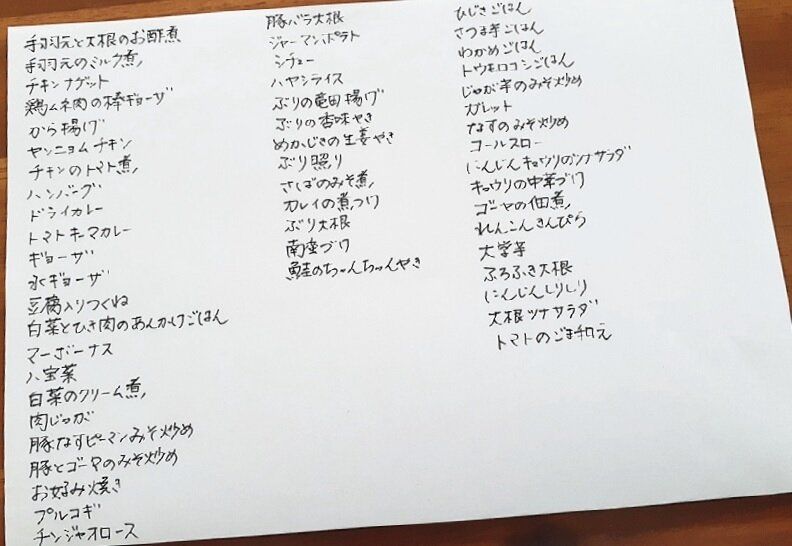 手羽元と大根のお酢煮
手羽元のミルク煮
チキンナゲット
鶏ムネ肉の棒ギョーザ
から揚げ
ヤンニョムチキン
チキンのトマト煮
ハンバーグ
ドライカレー
トマトキーマカレー
ギョーザ
水ギョーザ
豆腐入りつくね
白菜とひき肉のあんかけごはん
マーボーナス
八宝菜
白菜のクリーム煮
肉じゃが
豚なすピーマンみそ炒め
豚とゴーヤのみそ炒め
お好み焼き
プルコギ
チンジャオロース
豚バラ大根
ジャーマンポテト
シチュー
ハヤシライス
ぶりの竜田揚げ
ぶりの香味やき
めかじきの生姜やき
ぶり照り
さばのみそ煮
カレイの煮つけ
ぶり大根
南蛮づけ
鮭のちゃんちゃんやき
ひじきごはん
さつま芋ごはん
わかめごはん
トウモロコシごはん
じゃが芋のみそ炒め
ガレット
なすのみそ炒め
コールスロー
にんじんキュウリのツナサラダ
キュウリの中華づけ
ゴーヤの佃煮
れんこんきんぴら
大学芋
ふろふき大根
にんじんしりしり
大根ツナサラダ
トマトのごま和え